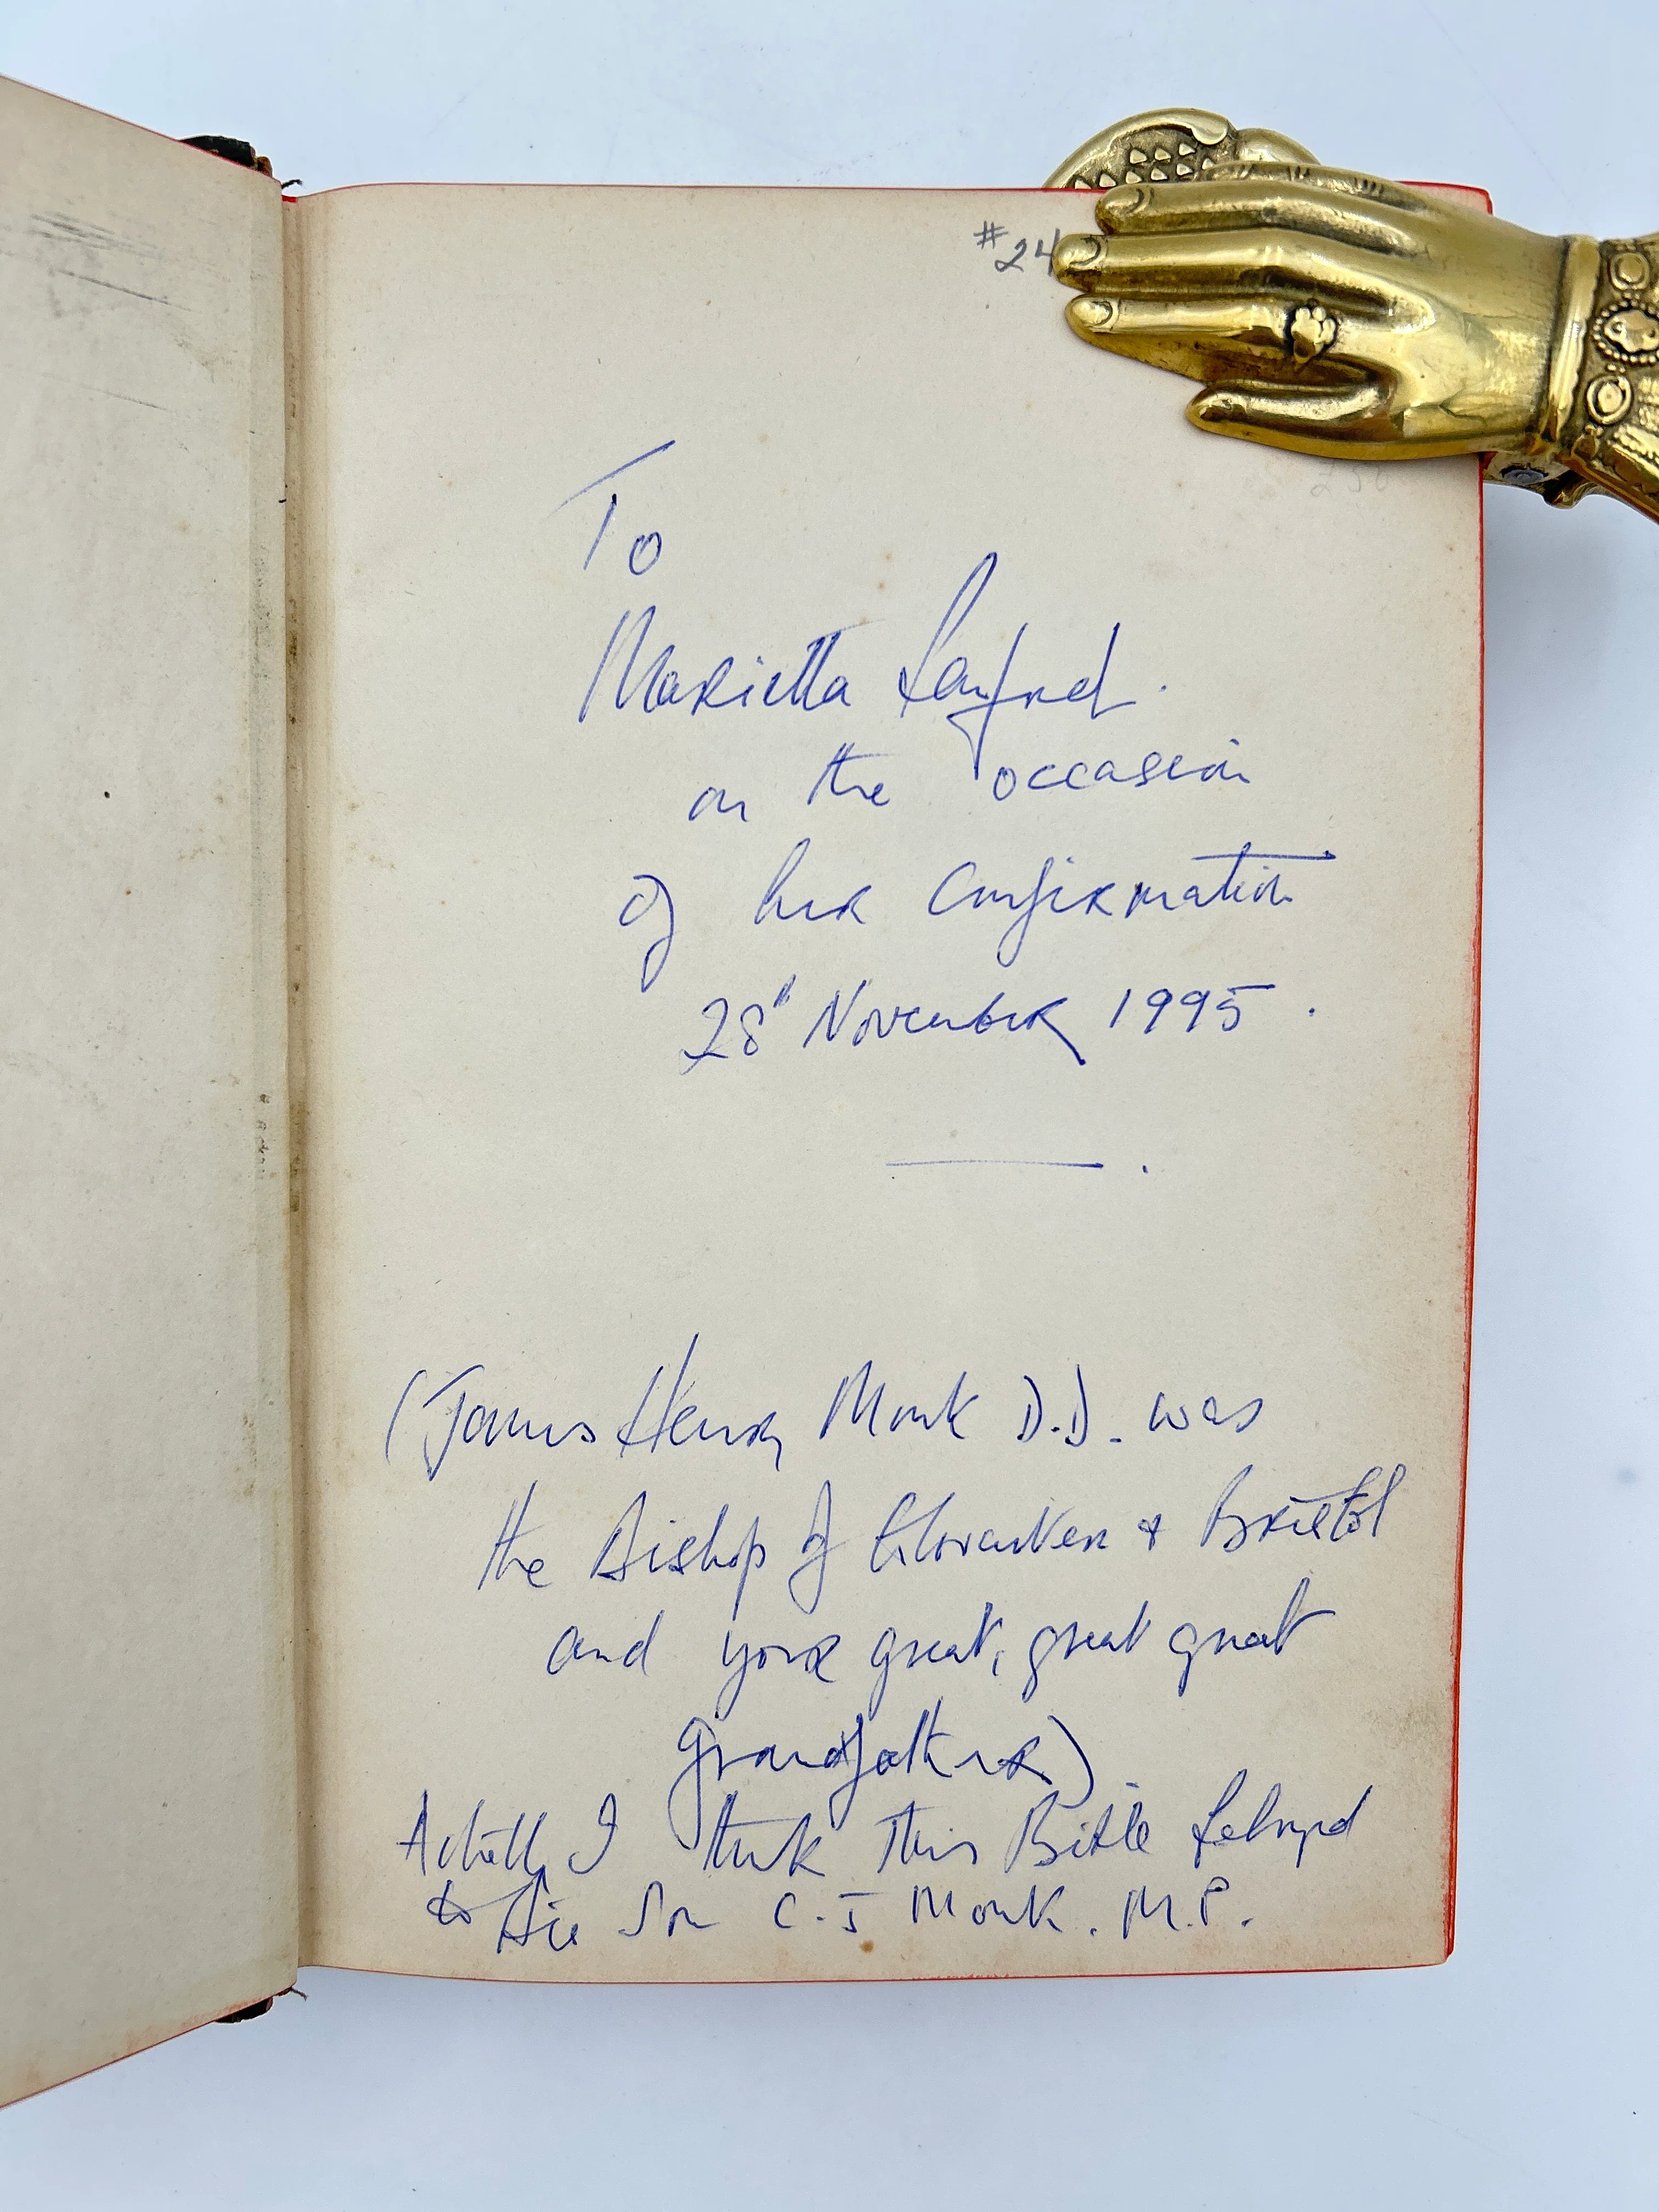 #24
To
Marietta
on the occasion
of her Confirmation
28" November 1995.
(James Henry Monk D.D. was
the Bishop of Gloucester & Bristol
and your great, great great
Grandfather).
Actually I think this Bible belonged
to his Son C.J Monk. M.P.